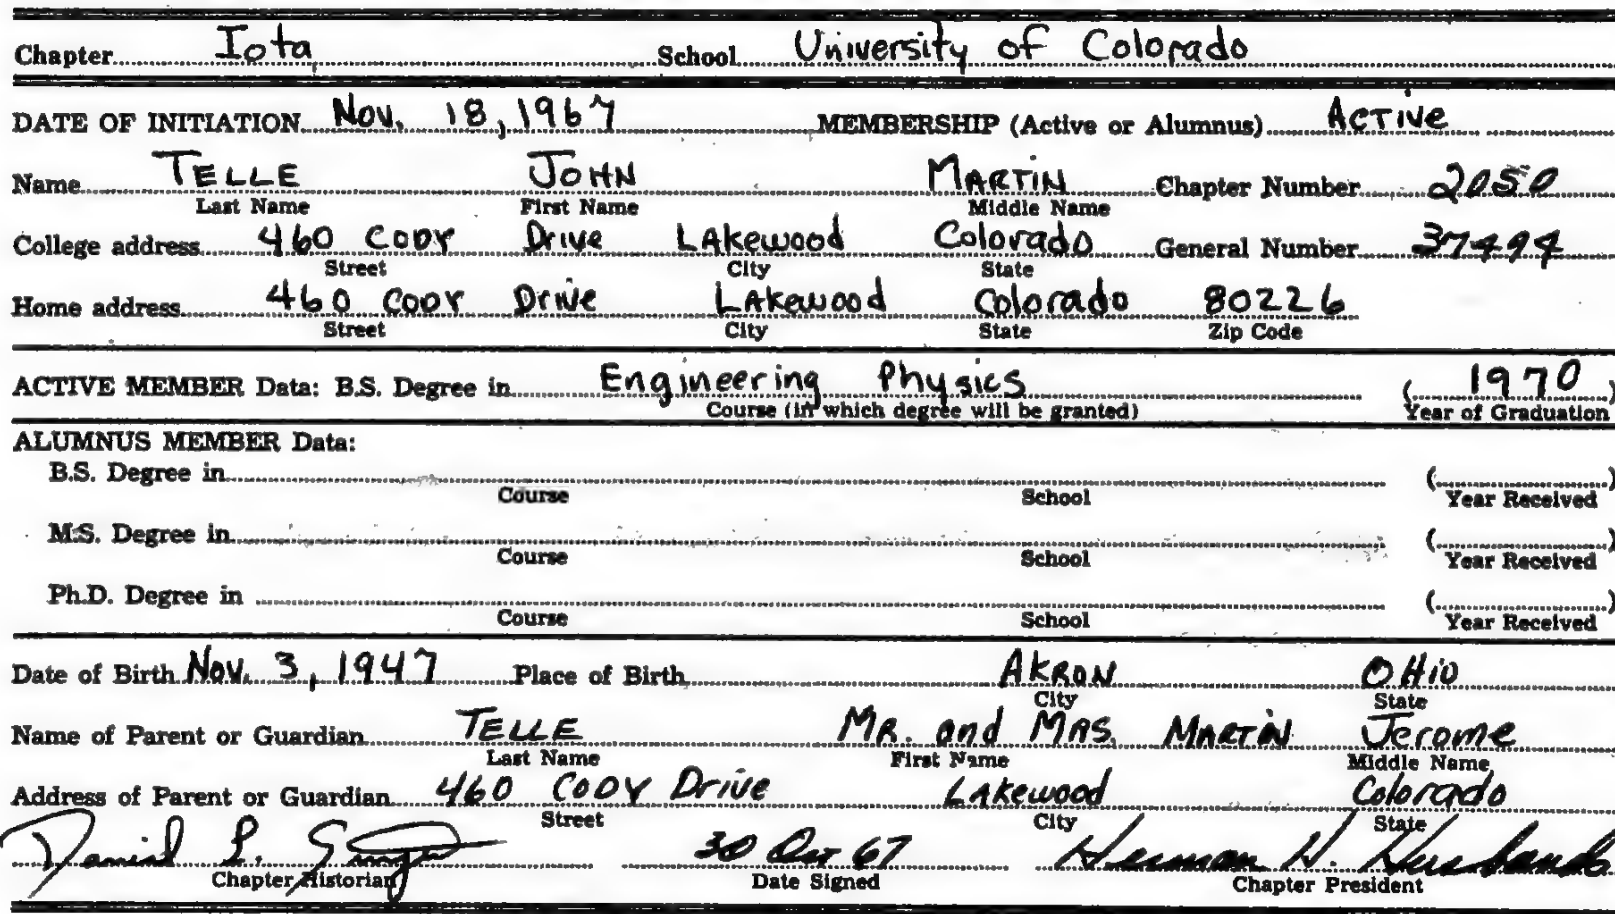 Chapter Iota School University of Colorado
DATE OF INITIATION Nov. 18, 1967 MEMBERSHIP (Active or Alumnus) Active
Name TELLE JOHN MARTIN Chapter Number 2050
Last Name First Name Middle Name
College address 460 CODY Drive LAkewood Colorado General Number 37494
Street City State
Home address 460 CODY Drive LAkewood Colorado 80226
Street City State Zip Code
ACTIVE MEMBER Data: B.S. Degree in Engineering Physics (1970)
Course (in which degree will be granted) Year of Graduation
ALUMNUS MEMBER Data:
B.S. Degree in ( )
Course School Year Received
M.S. Degree in ( )
Course School Year Received
Ph.D. Degree in ( )
Course School Year Received
Date of Birth Nov. 3, 1947 Place of Birth AKRON OHio
City State
Name of Parent or Guardian TELLE MR. and MRS. MARTIN Jerome
Last Name First Name Middle Name
Address of Parent or Guardian 460 CODY Drive LAkewood Colorado
Street City State
Daniel L. 30 Oct 67 Herman W. Husbands
Chapter Historian Date Signed Chapter President